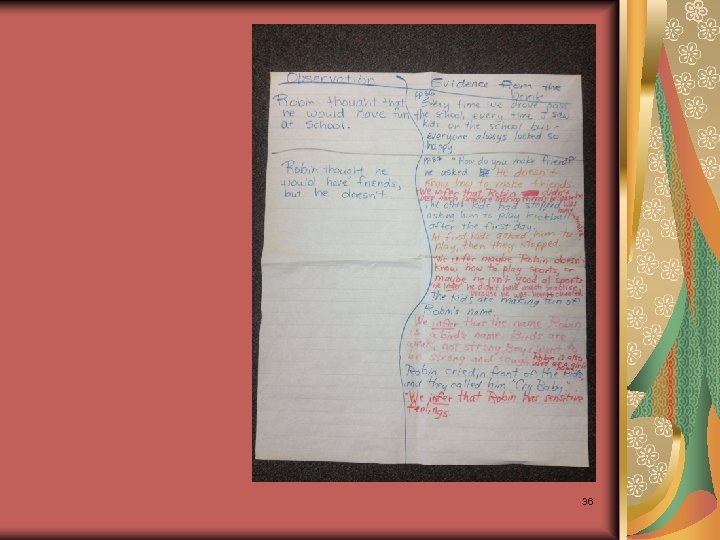 Observation
Evidence from the
book
Robin thought that
he would have fun
at School.
pp86
"Every time we drove past
the school, every time I saw
kids on the school bus -
everyone always looked so
happy
Robin thought he
would have friends,
but he doesn't.
"How do you make friends?"
he asked He doesn't
know how to make friends.
We infer that Robin didn't
have much practice making friends because he
was home schooled
The other kids had stopped
asking him to play kickball
after the first day.
At first kids asked him to
play, then they stopped.
We infer maybe Robin doesn't
know how to play sports, or
maybe he isn't good at sports
We infer he didn't have much practice
because he was home schooled.
The kids are making fun of
Robin's name.
We infer that the name Robin
is a bird's name. Birds are
weak, not strong Boys want to
be strong and tough. Robin is also
Robin cried in front of the kids,
and they called him "Cry Baby".
We infer that Robin has sensitive
feelings
36